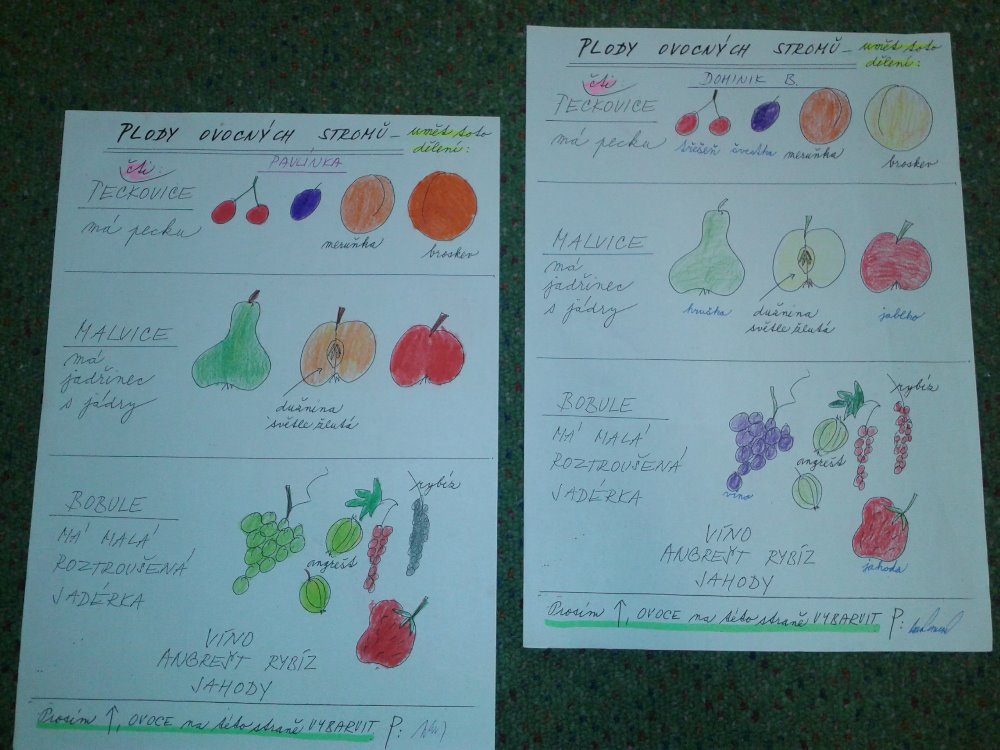 PLODY OVOCNÝCH STROMŮ – umět toto
dělení:
PAVLÍNKA
čti:
PECKOVICE
má pecku
meruňka
broskev
MALVICE
má
jadřinec
s jádry
dužnina
světle žlutá
BOBULE
MÁ MALÁ
ROZTROUŠENÁ
JADÉRKA
rybíz
angrešt
VÍNO
ANGREŠT RYBÍZ
JAHODY
Prosím ↑, OVOCE na této straně VYBARVIT P:
PLODY OVOCNÝCH STROMŮ – umět toto
dělení:
DOMINIK B.
čti
PECKOVICE
má pecku
třešeň švestka meruňka
broskev
MALVICE
má
jadřinec
s jádry
hruška
dužnina
světle žlutá
jablko
BOBULE
MÁ MALÁ
ROZTROUŠENÁ
JADÉRKA
rybíz
angrešt
víno
jahoda
VÍNO
ANGREŠT RYBÍZ
JAHODY
Prosím ↑, OVOCE na této straně VYBARVIT P: